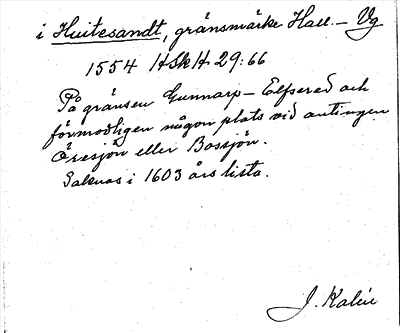 i Huitesandt, gränsmärke Hall. - Vg
1554 HSkH 29:66
På gränsen Gunnarp - Elfsered och
förmodligen någon plats vid antingen
Öresjön eller Bossjön.
Saknas i 1603 års lista.
J. Kalén